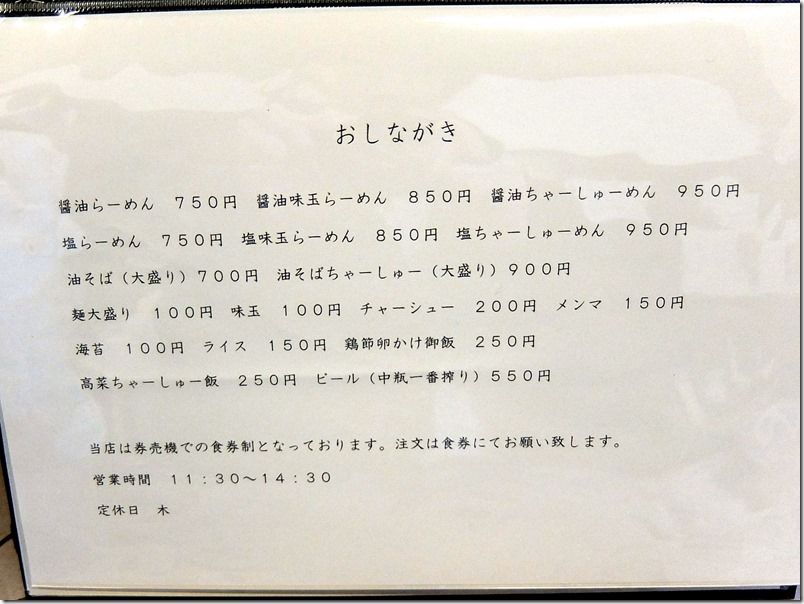 おしながき
醤油らーめん　７５０円　醤油味玉らーめん　８５０円　醤油ちゃーしゅーめん　９５０円
塩らーめん　７５０円　塩味玉らーめん　８５０円　塩ちゃーしゅーめん　９５０円
油そば（大盛り）７００円　油そばちゃーしゅー（大盛り）９００円
麺大盛り　１００円　味玉　１００円　チャーシュー　２００円　メンマ　１５０円
海苔　１００円　ライス　１５０円　鶏節卵かけ御飯　２５０円
高菜ちゃーしゅー飯　２５０円　ビール（中瓶一番搾り）５５０円
当店は券売機での食券制となっております。注文は食券にてお願い致します。
営業時間　１１：３０～１４：３０
定休日　木